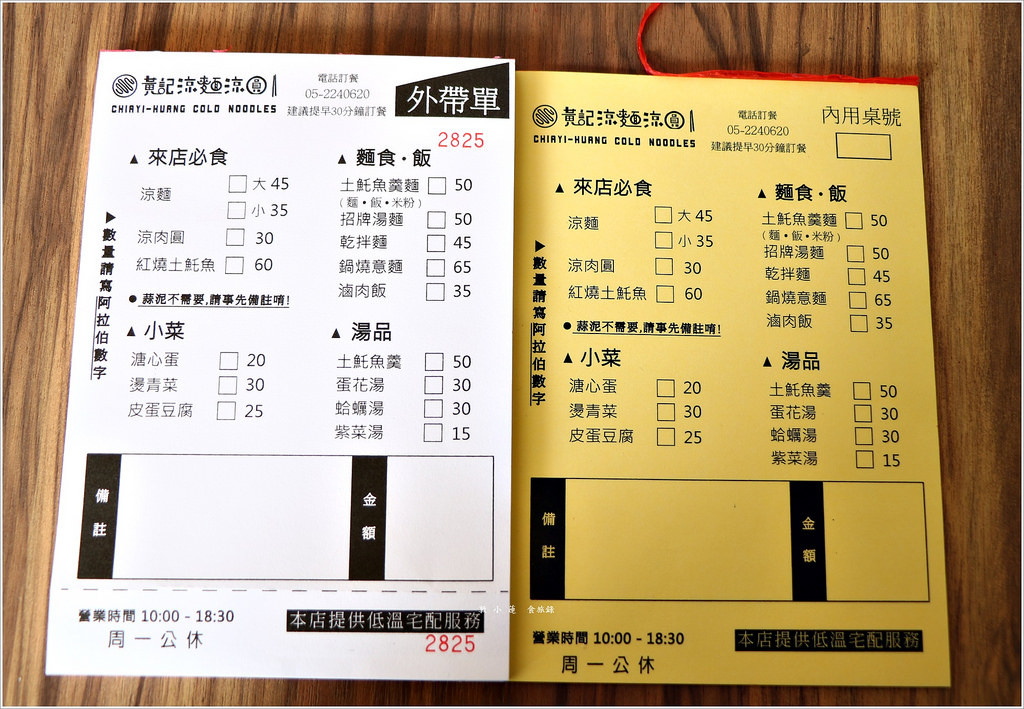 黃記涼麵涼圓
CHIAYI-HUANG COLD NOODLES
電話訂餐
05-2240620
建議提早30分鐘訂餐
外帶單
2825
▲ 來店必食
涼麵 □ 大 45
□ 小 35
涼肉圓 □ 30
紅燒土魠魚 □ 60
● 蒜泥不需要,請事先備註唷!
▶數量請寫阿拉伯數字
▲ 小菜
溏心蛋 □ 20
燙青菜 □ 30
皮蛋豆腐 □ 25
▲ 麵食·飯
土魠魚羹麵 □ 50
(麵·飯·米粉)
招牌湯麵 □ 50
乾拌麵 □ 45
鍋燒意麵 □ 65
滷肉飯 □ 35
▲ 湯品
土魠魚羹 □ 50
蛋花湯 □ 30
蛤蠣湯 □ 30
紫菜湯 □ 15
備註
金額
營業時間 10:00 - 18:30
周一公休
本店提供低溫宅配服務
2825
黃記涼麵涼圓
CHIAYI-HUANG COLD NOODLES
電話訂餐
05-2240620
建議提早30分鐘訂餐
內用桌號
▲ 來店必食
涼麵 □ 大 45
□ 小 35
涼肉圓 □ 30
紅燒土魠魚 □ 60
● 蒜泥不需要,請事先備註唷!
▶數量請寫阿拉伯數字
▲ 小菜
溏心蛋 □ 20
燙青菜 □ 30
皮蛋豆腐 □ 25
▲ 麵食·飯
土魠魚羹麵 □ 50
(麵·飯·米粉)
招牌湯麵 □ 50
乾拌麵 □ 45
鍋燒意麵 □ 65
滷肉飯 □ 35
▲ 湯品
土魠魚羹 □ 50
蛋花湯 □ 30
蛤蠣湯 □ 30
紫菜湯 □ 15
備註
金額
營業時間 10:00 - 18:30
周一公休
本店提供低溫宅配服務
小蓮 食旅錄